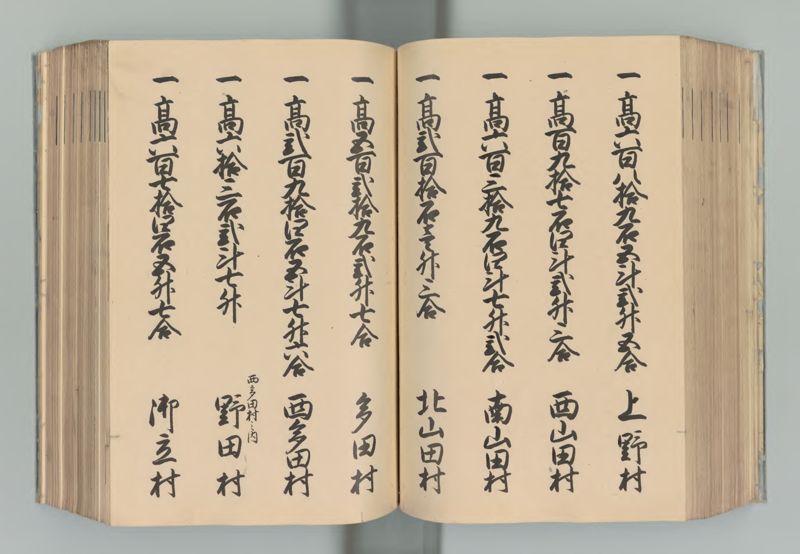 一 高六百八拾九石五斗弐升五合 上野村
一 高百九拾七石四斗弐升二合 西山田村
一 高六百三拾九石四斗七升弐合 南山田村
一 高弐百拾石壱升二合 北山田村
一 高五百弐拾九石弐升七合 多田村
一 高弐百九拾四石五斗七升六合 西多田村
西多田村之内
一 高六拾二石弐斗七升 野田村
一 高六百七拾四石五升七合 御立村